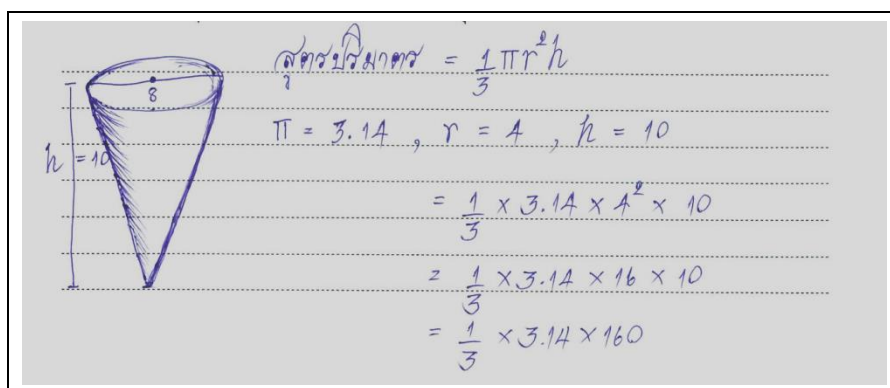 สูตรปริมาตร = 1/3 πr²h
8
π = 3.14 , r = 4 , h = 10
h = 10
= 1/3 × 3.14 × 4² × 10
= 1/3 × 3.14 × 16 × 10
= 1/3 × 3.14 × 160